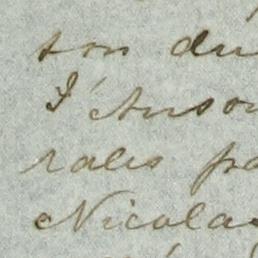 son du
I'Anson
rales pa
Nicolas